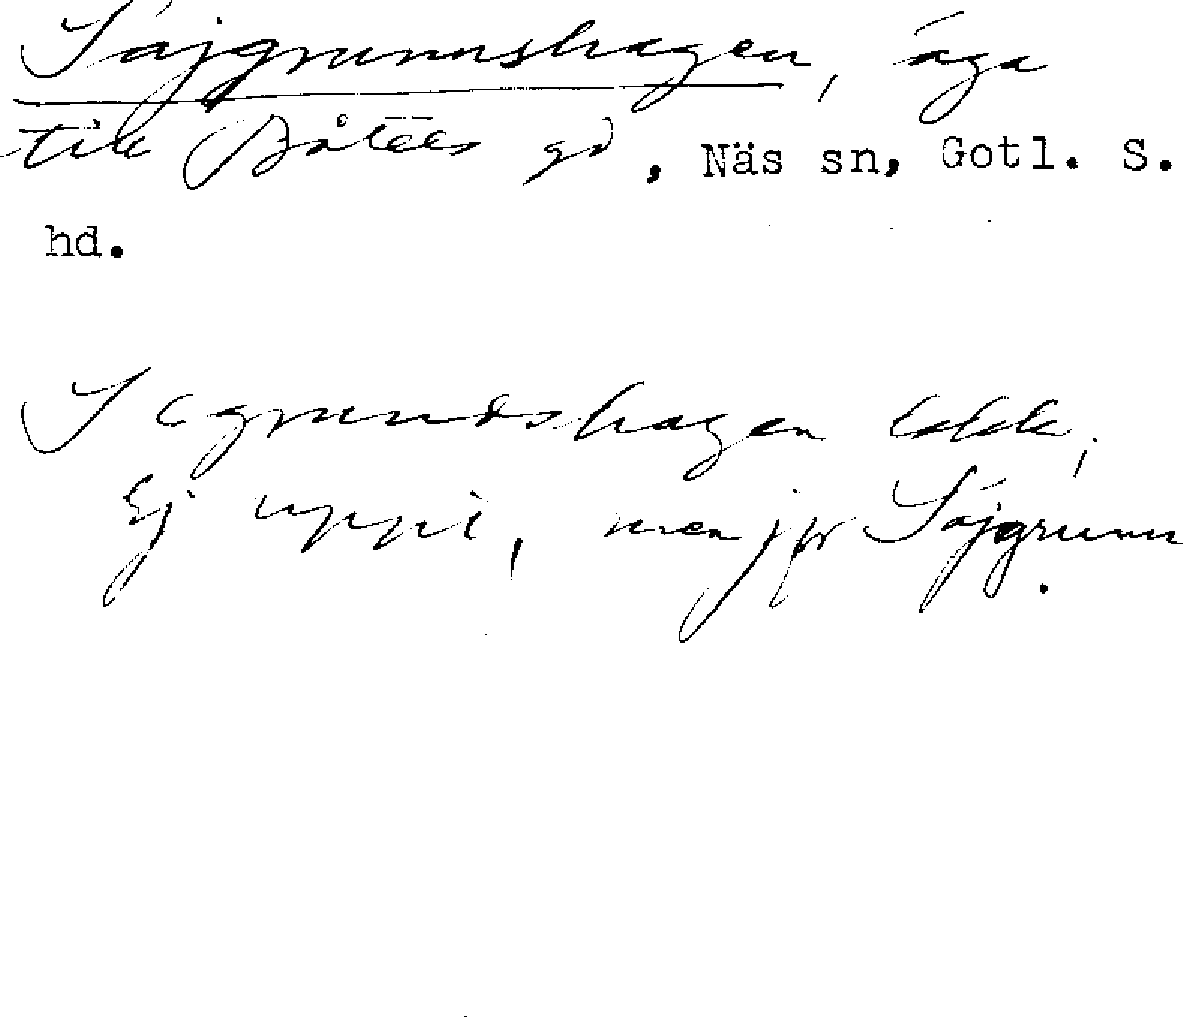 Söjgrunnshagen, äga
till Båtels gd, Näs sn, Gotl. S.
hd.
Segrundshagen
Ej uppt, men jfr Söjgrunn.